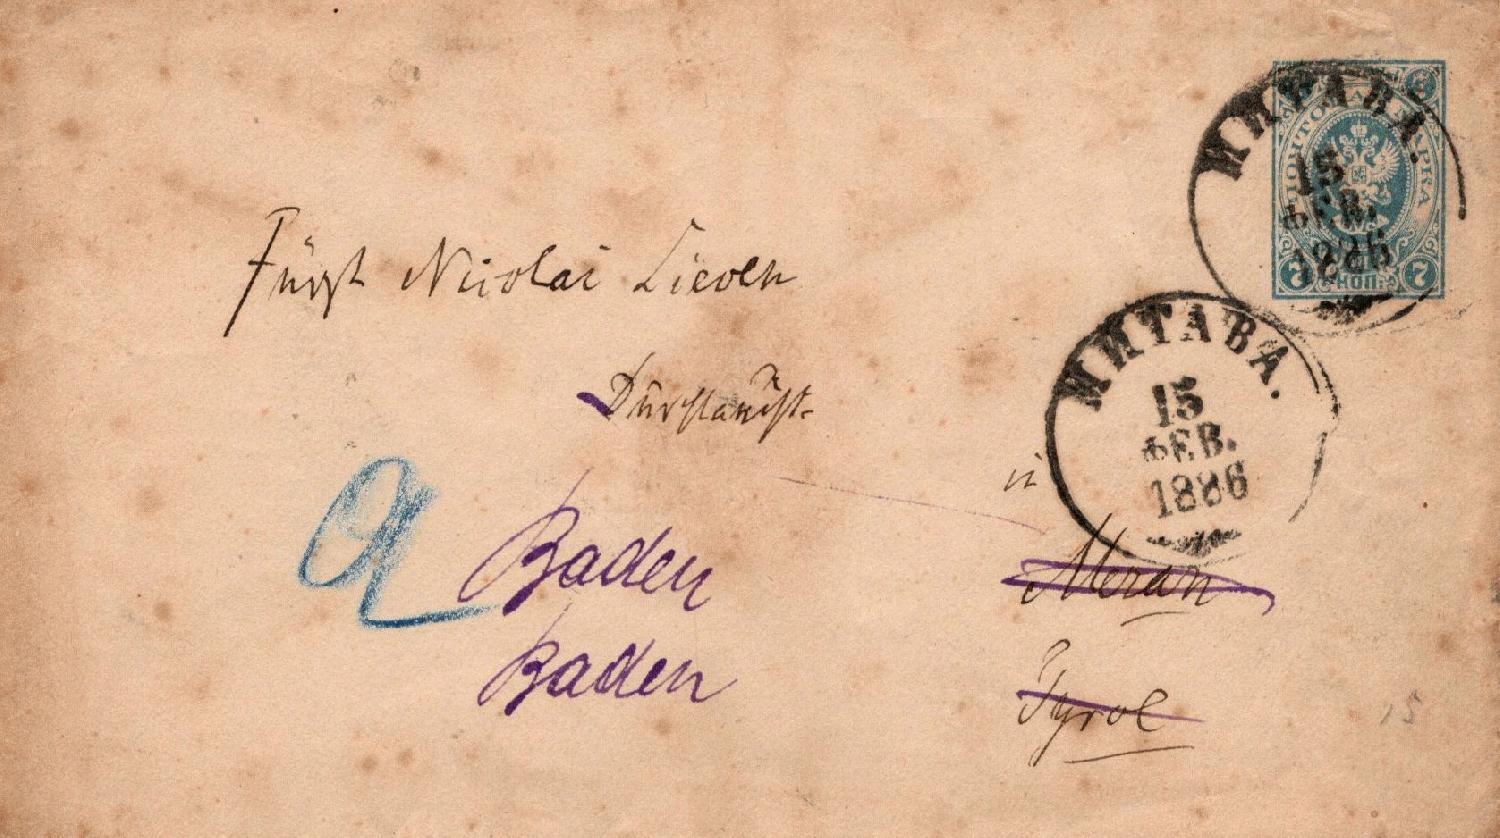 ПОЧТОВАЯ МАРКА
7 КОП. 7
МИТАВА.
15
ФЕВ.
1886
МИТАВА.
15
ФЕВ.
1886
Fürst Nicolai Lieven
Durchlaucht.
in
Meran
Tyrol
Baden
Baden
15